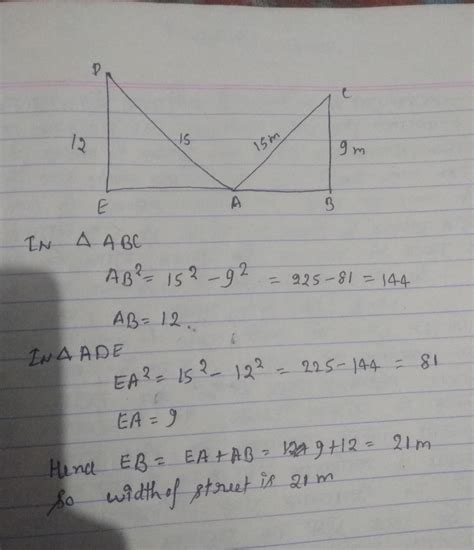 D
C
12
15
15m
9m
E
A
B
IN △ ABC
AB² = 15² - 9² = 225 - 81 = 144
AB = 12.
IN △ ADE
EA² = 15² - 12² = 225 - 144 = 81
EA = 9
Hence EB = EA + AB = 9 + 12 = 21 m
So width of street is 21 m